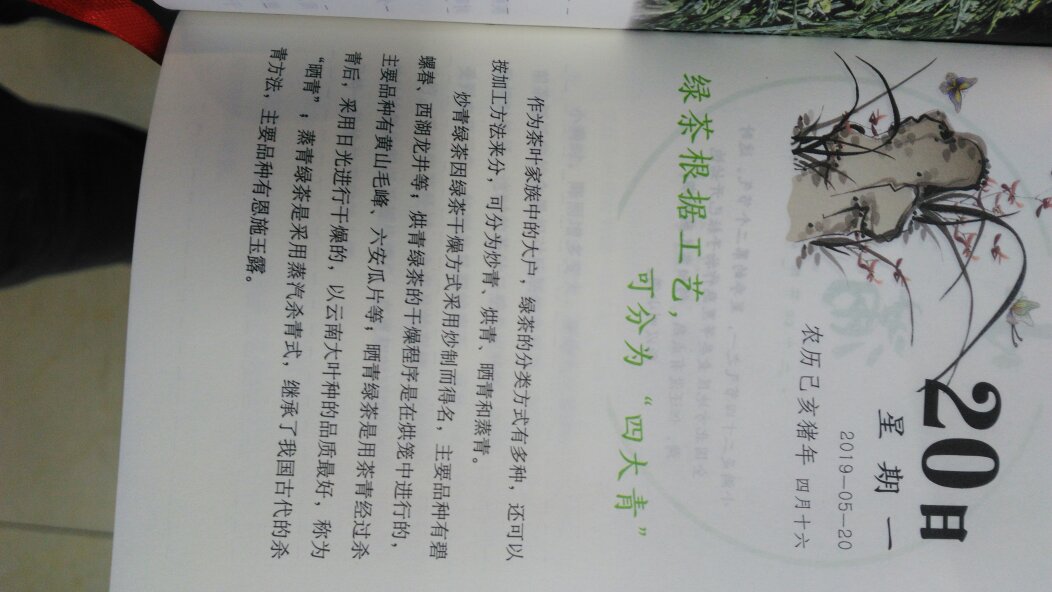 20日
星期一
2019-05-20
农历己亥猪年 四月十六
绿茶根据工艺，
可分为“四大青”
作为茶叶家族中的大户，绿茶的分类方式有多种，还可以
按加工方法来分，可分为炒青、烘青、晒青和蒸青。
炒青绿茶因绿茶干燥方式采用炒制而得名，主要品种有碧
螺春、西湖龙井等；烘青绿茶的干燥程序是在烘笼中进行的，
主要品种有黄山毛峰、六安瓜片等；晒青绿茶是用茶青经过杀
青后，采用日光进行干燥的，以云南大叶种的品质最好，称为
“晒青”，蒸青绿茶是采用蒸汽杀青式，继承了我国古代的杀
青方法，主要品种有恩施玉露。